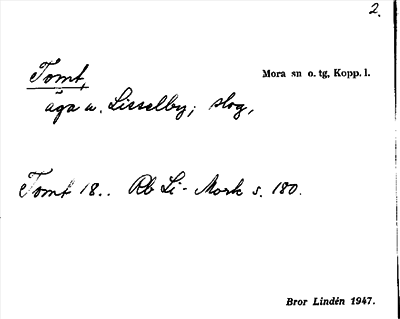 2.
Tomt,
Mora sn o. tg, Kopp. l.
äga u. Lisselby; slog,
Tomt 18.. Rb Li-Mork s. 180.
Bror Lindén 1947.